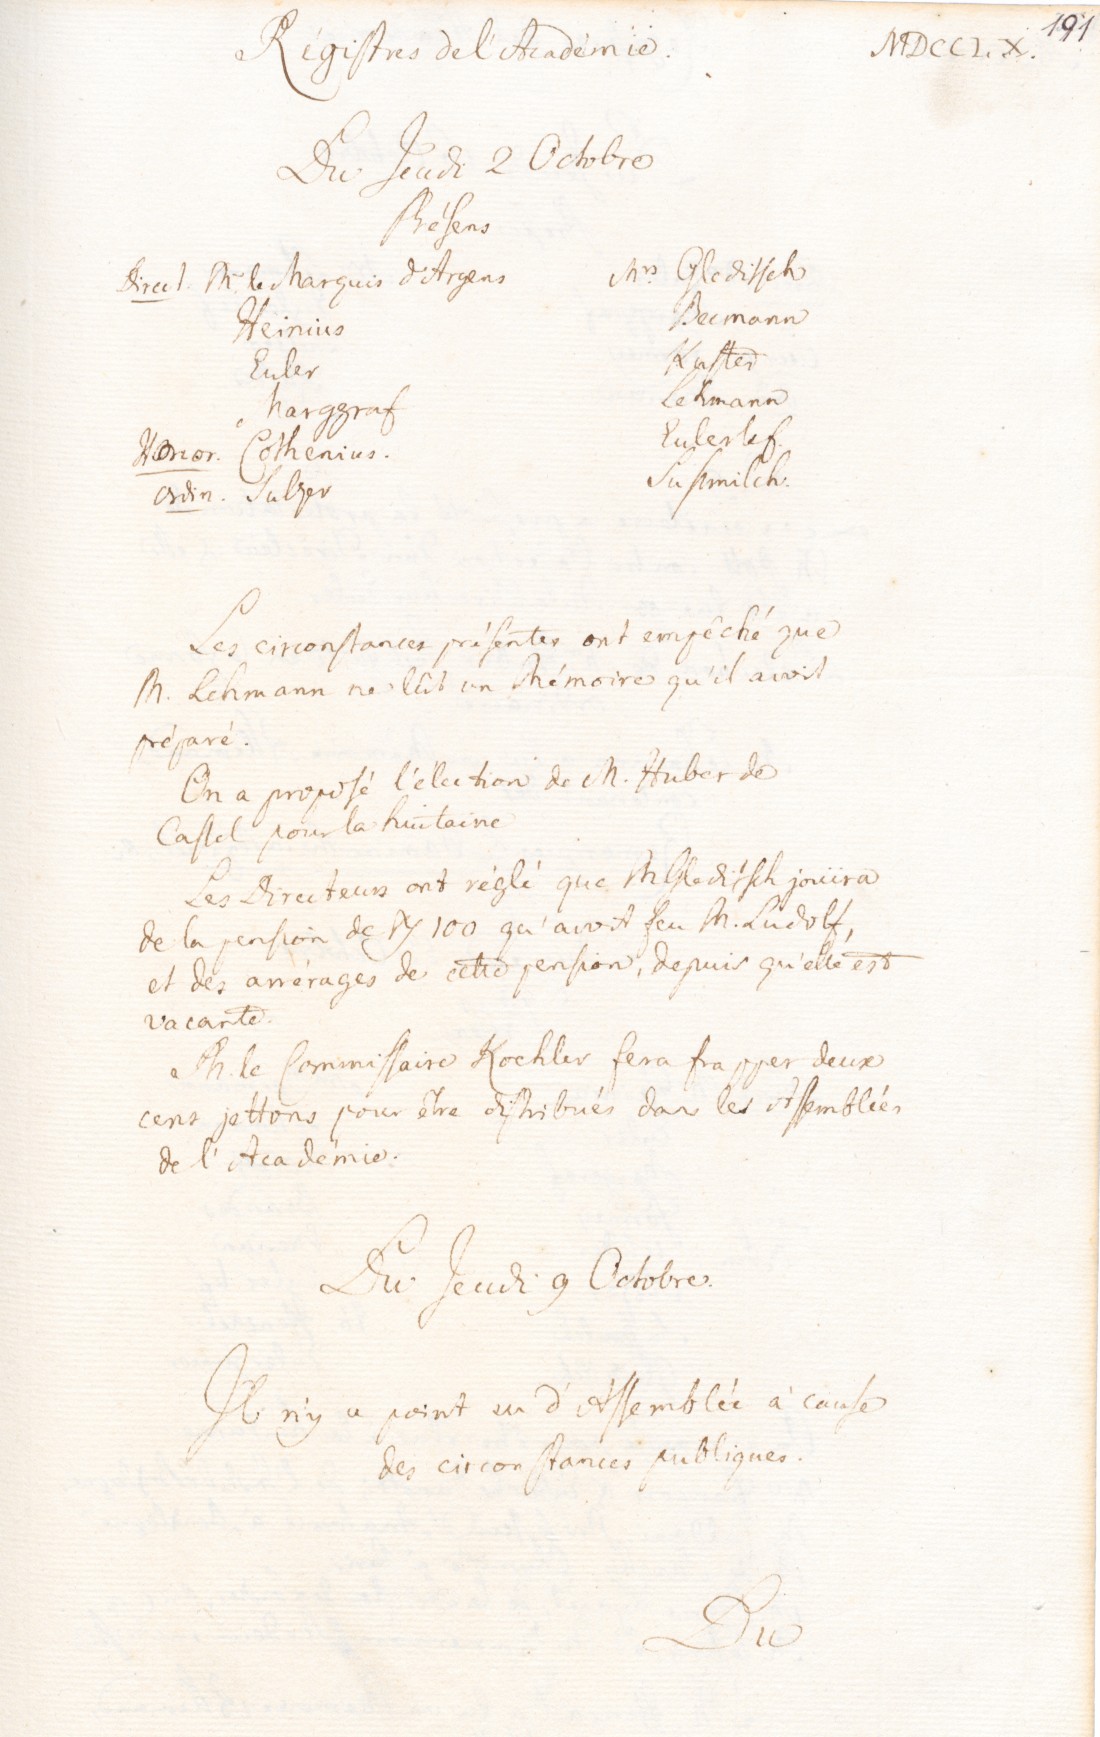 Régistres de l'Académie. MDCCLX. 191
Du Jeudi 2 Octobre
Présens
Direct. Mr. le Marquis d'Argens
Heinius
Euler
Marggraf
Honor. Cothenius.
Ordin. Sulzer
Mrs. Gleditsch
Becmann
Kuster
Lehmann
Euler le f.
Susmilch.
Les circonstances présentes ont empêché que
M. Lehmann ne lût un Mémoire qu'il avoit
préparé.
On a proposé l'élection de M. Huber de
Cassel pour la huitaine
Les Directeurs ont réglé que M Gleditsch jouira
de la pension de 100 qu'avoit feu M. Ludolf,
et des arrérages de cette pension, depuis qu'elle est
vacante.
M. le Commissaire Koehler fera frapper deux
cens jettons pour être distribués dans les Assemblées
de l'Académie.
Du Jeudi 9 Octobre.
Il n'y a point eu d'Assemblée à cause
des circonstances publiques.
Du